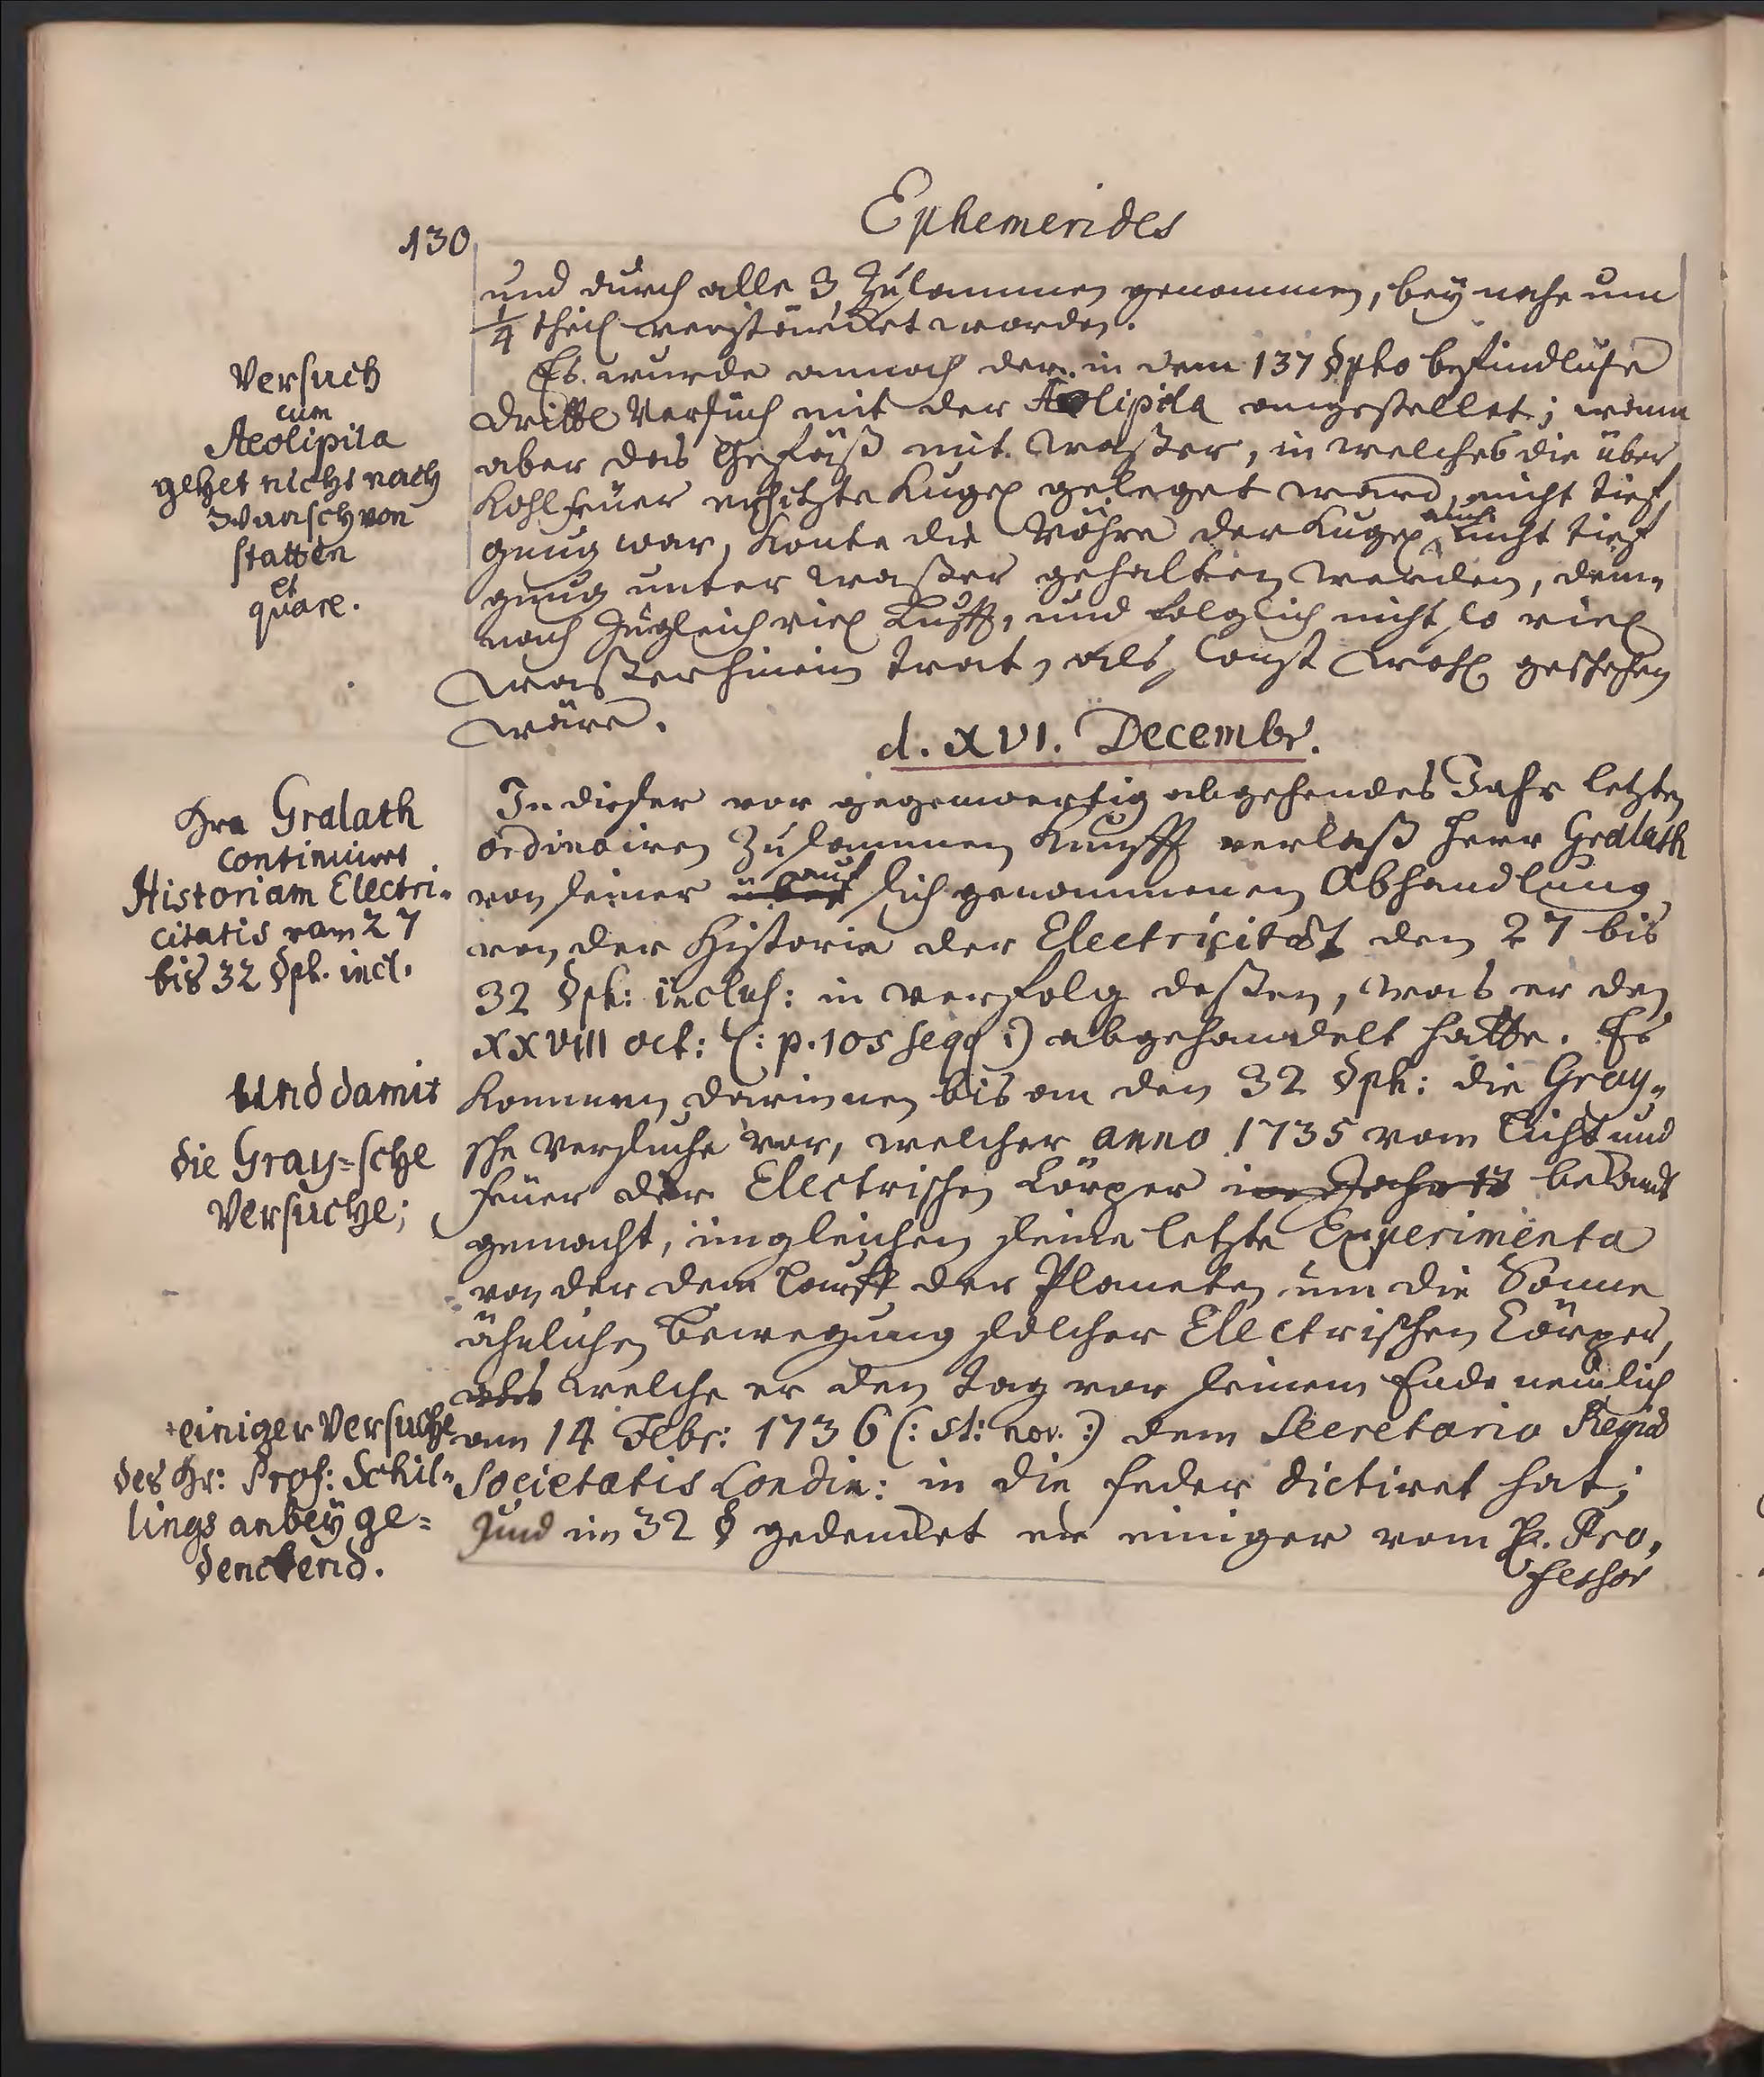 Ephemerides
130
und durch alle 3 zusammen genommen, bey nahe um
1/4 theil verstärcket worden.
Versuch
cum
Aeolipila
gehet nicht nach
Wunsch von
statten
et
quare.
Es wurde annoch der in dem 137 §pho befindliche
dritte Versuch mit der Aeolipila angestellet; wann
aber das Gefäß mit Waßer, in welches die über
Kohlfeuer erhitzte Kugel geleget ward, nicht tief
gnug war, konte die Röhre der Kugel auch nicht tief
gnug unter Waßer gehalten werden, dem„
nach zugleich viel Lufft, und folglich nicht so viel
Waßer hinein trat, als sonst wohl geschehen
wäre.
d. XVI. Decembr.
Hrn Gralath
continuirt
Historiam Electri„
citatis vom 27
bis 32 §ph. incl.
In dieser vor gegenwertig abgehendes Jahr letzten
ordinairen Zusammen Kunfft verlaß Herr Gralath
von seiner über auf sich genommenen Abhandlung
von der Historie der Electricität den 27 bis
32 §ph: inclus: in Verfolg deßen, was er den
XXVIII Oct: (: p. 105 seqq :) abgehandelt hatte. Es
Und damit
die Gray=sche
Versuche;
kommen darinnen bis an den 32 §ph: die Gray„
sche Versuche vor, welcher anno 1735 vom Licht und
Feuer der Electrischen Cörper im Jahr bekandt
gemacht, imgleichen seine letzte Experimenta
von der dem Lauff der Planeten um die Sonne
ähnlichen Bewegung solcher Electrischen Cörper,
als welche er den Tag vor seinem Ende nemlich
einiger Versuche
des Hr: Prof: Schil„
lings anbey ge=
denckend.
am 14 Febr: 1736 (: st: nov. :) dem Secretario Regiae
Societatis Londin: in die Feder dictiret hat;
Und im 32 § gedencket er einiger vom H. Pro„
fessor